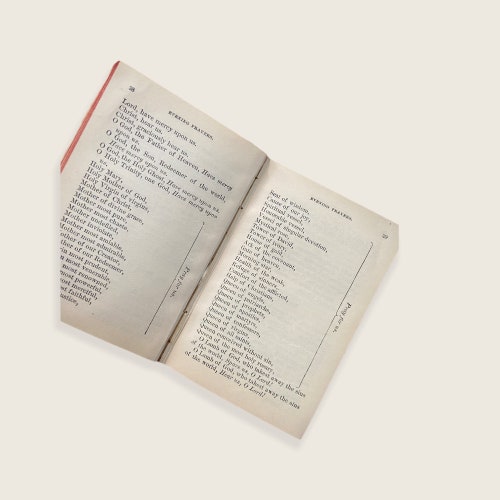 28
EVENING PRAYERS.
Lord, have mercy upon us.
Christ, hear us.
Christ, graciously hear us.
O God, the Father of Heaven, Have mercy
upon us.
O God, the Son, Redeemer of the world,
Have mercy upon us.
O God, the Holy Ghost, Have mercy upon us.
O Holy Trinity, one God, Have mercy upon
us.
Holy Mary,
Holy Mother of God,
Holy Virgin of virgins,
Mother of Christ,
Mother of divine grace,
Mother most pure,
Mother most chaste,
Mother inviolate,
Mother undefiled,
Mother most amiable,
Mother most admirable,
other of our Creator,
other of our Redeemer,
in most prudent,
most venerable,
most renowned,
most powerful,
most merciful,
st faithful
ustice,
Pray for us.
EVENING PRAYERS.
29
Seat of wisdom,
Cause of our joy,
Spiritual vessel,
Honorable vessel,
Vessel of singular devotion,
Mystical rose,
Tower of David,
Tower of ivory,
House of gold,
Ark of the covenant,
Gate of heaven,
Morning star,
Health of the weak,
Refuge of sinners,
Comfort of the afflicted,
Help of Christians,
Queen of angels,
Queen of patriarchs,
Queen of prophets,
Queen of apostles,
Queen of martyrs,
Queen of confessors,
Queen of virgins,
Queen of all saints,
Queen conceived without sin,
Queen of the most holy rosary,
O Lamb of God, who takest away the sins
of the world, Spare us, O Lord!
O Lamb of God, who takest away the sins
of the world, Hear us, O Lord!
Pray for us.